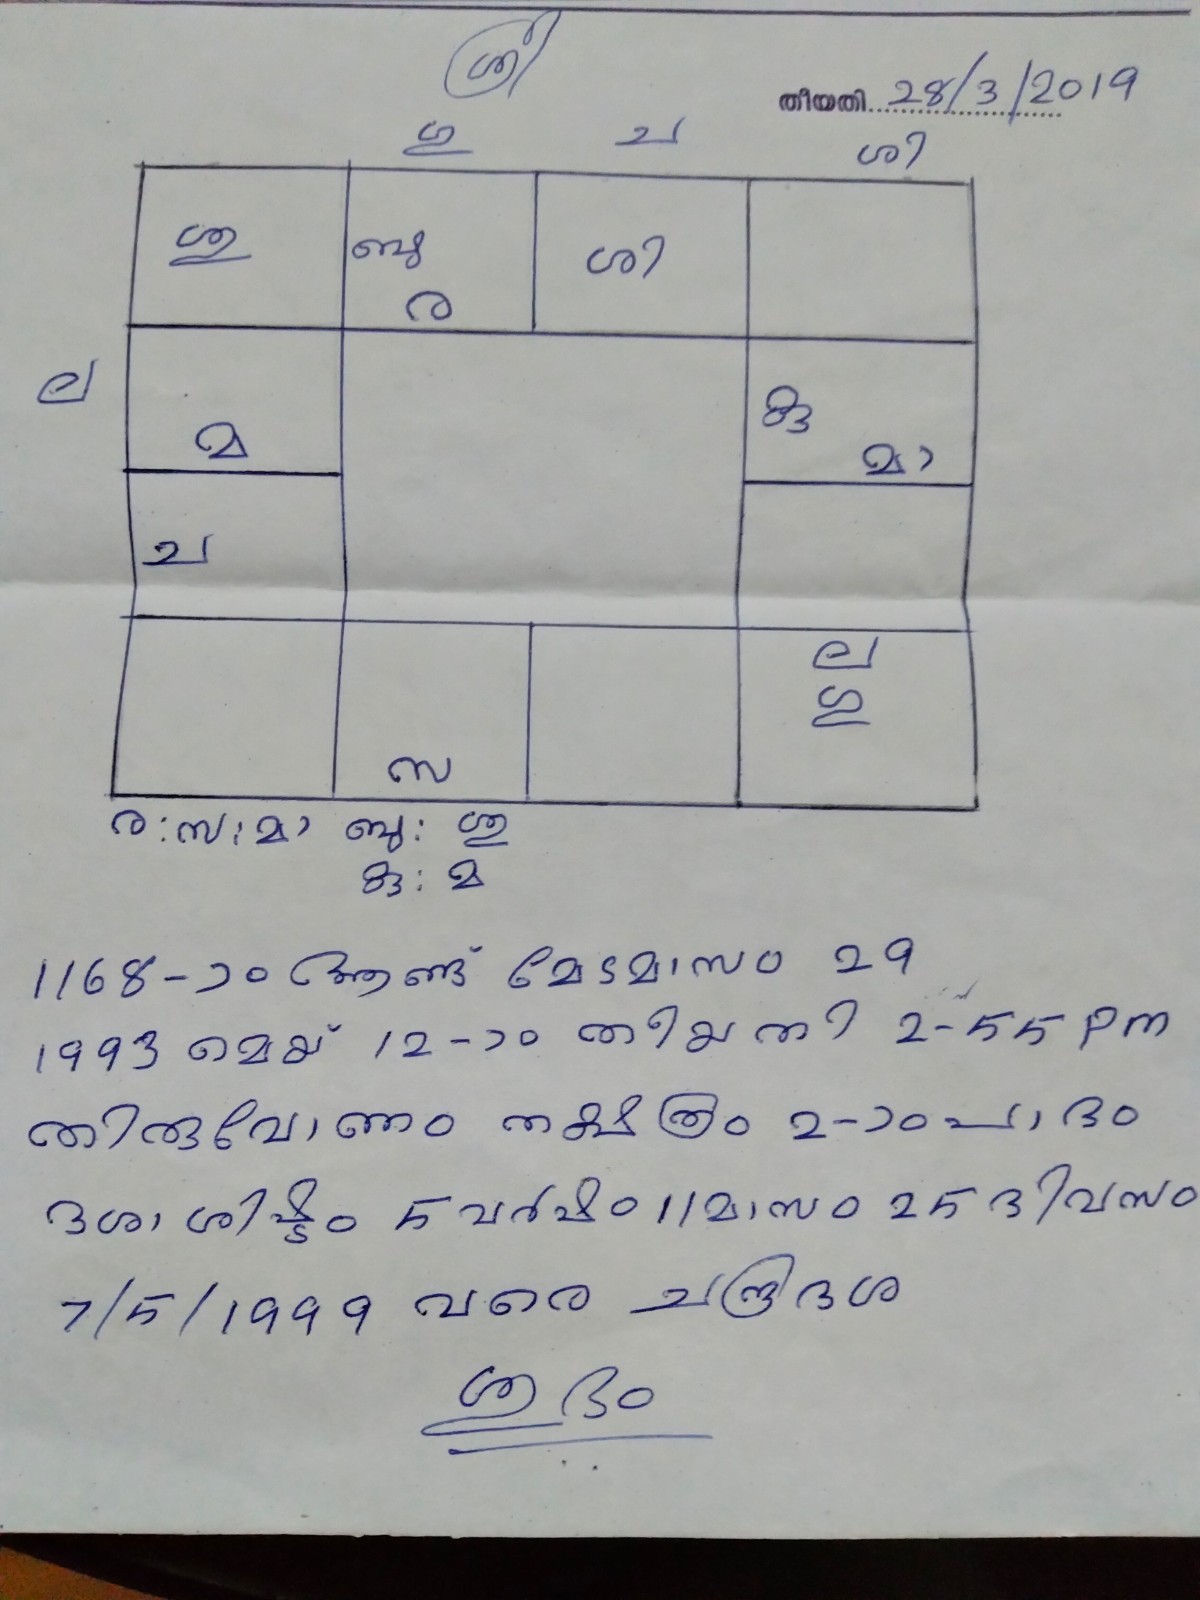 ശ്രീ
തീയതി 28/3/2019
ഗു ച ശി
ശു ബു ശി
ര
ല
കു
മ മാ
ച
ല
ഗു
സ
ര:സ:മാ ബു: ശു
കു: മ
1168-ാം ആണ്ട് മേടമാസം 29
1993 മെയ് 12-ാം തിയതി 2-55 pm
തിരുവോണം നക്ഷത്രം 2-ാം പാദം
ദശാശിഷ്ടം 5 വർഷം 11 മാസം 25 ദിവസം
7/5/1999 വരെ ചന്ദ്രദശ
ശുഭം